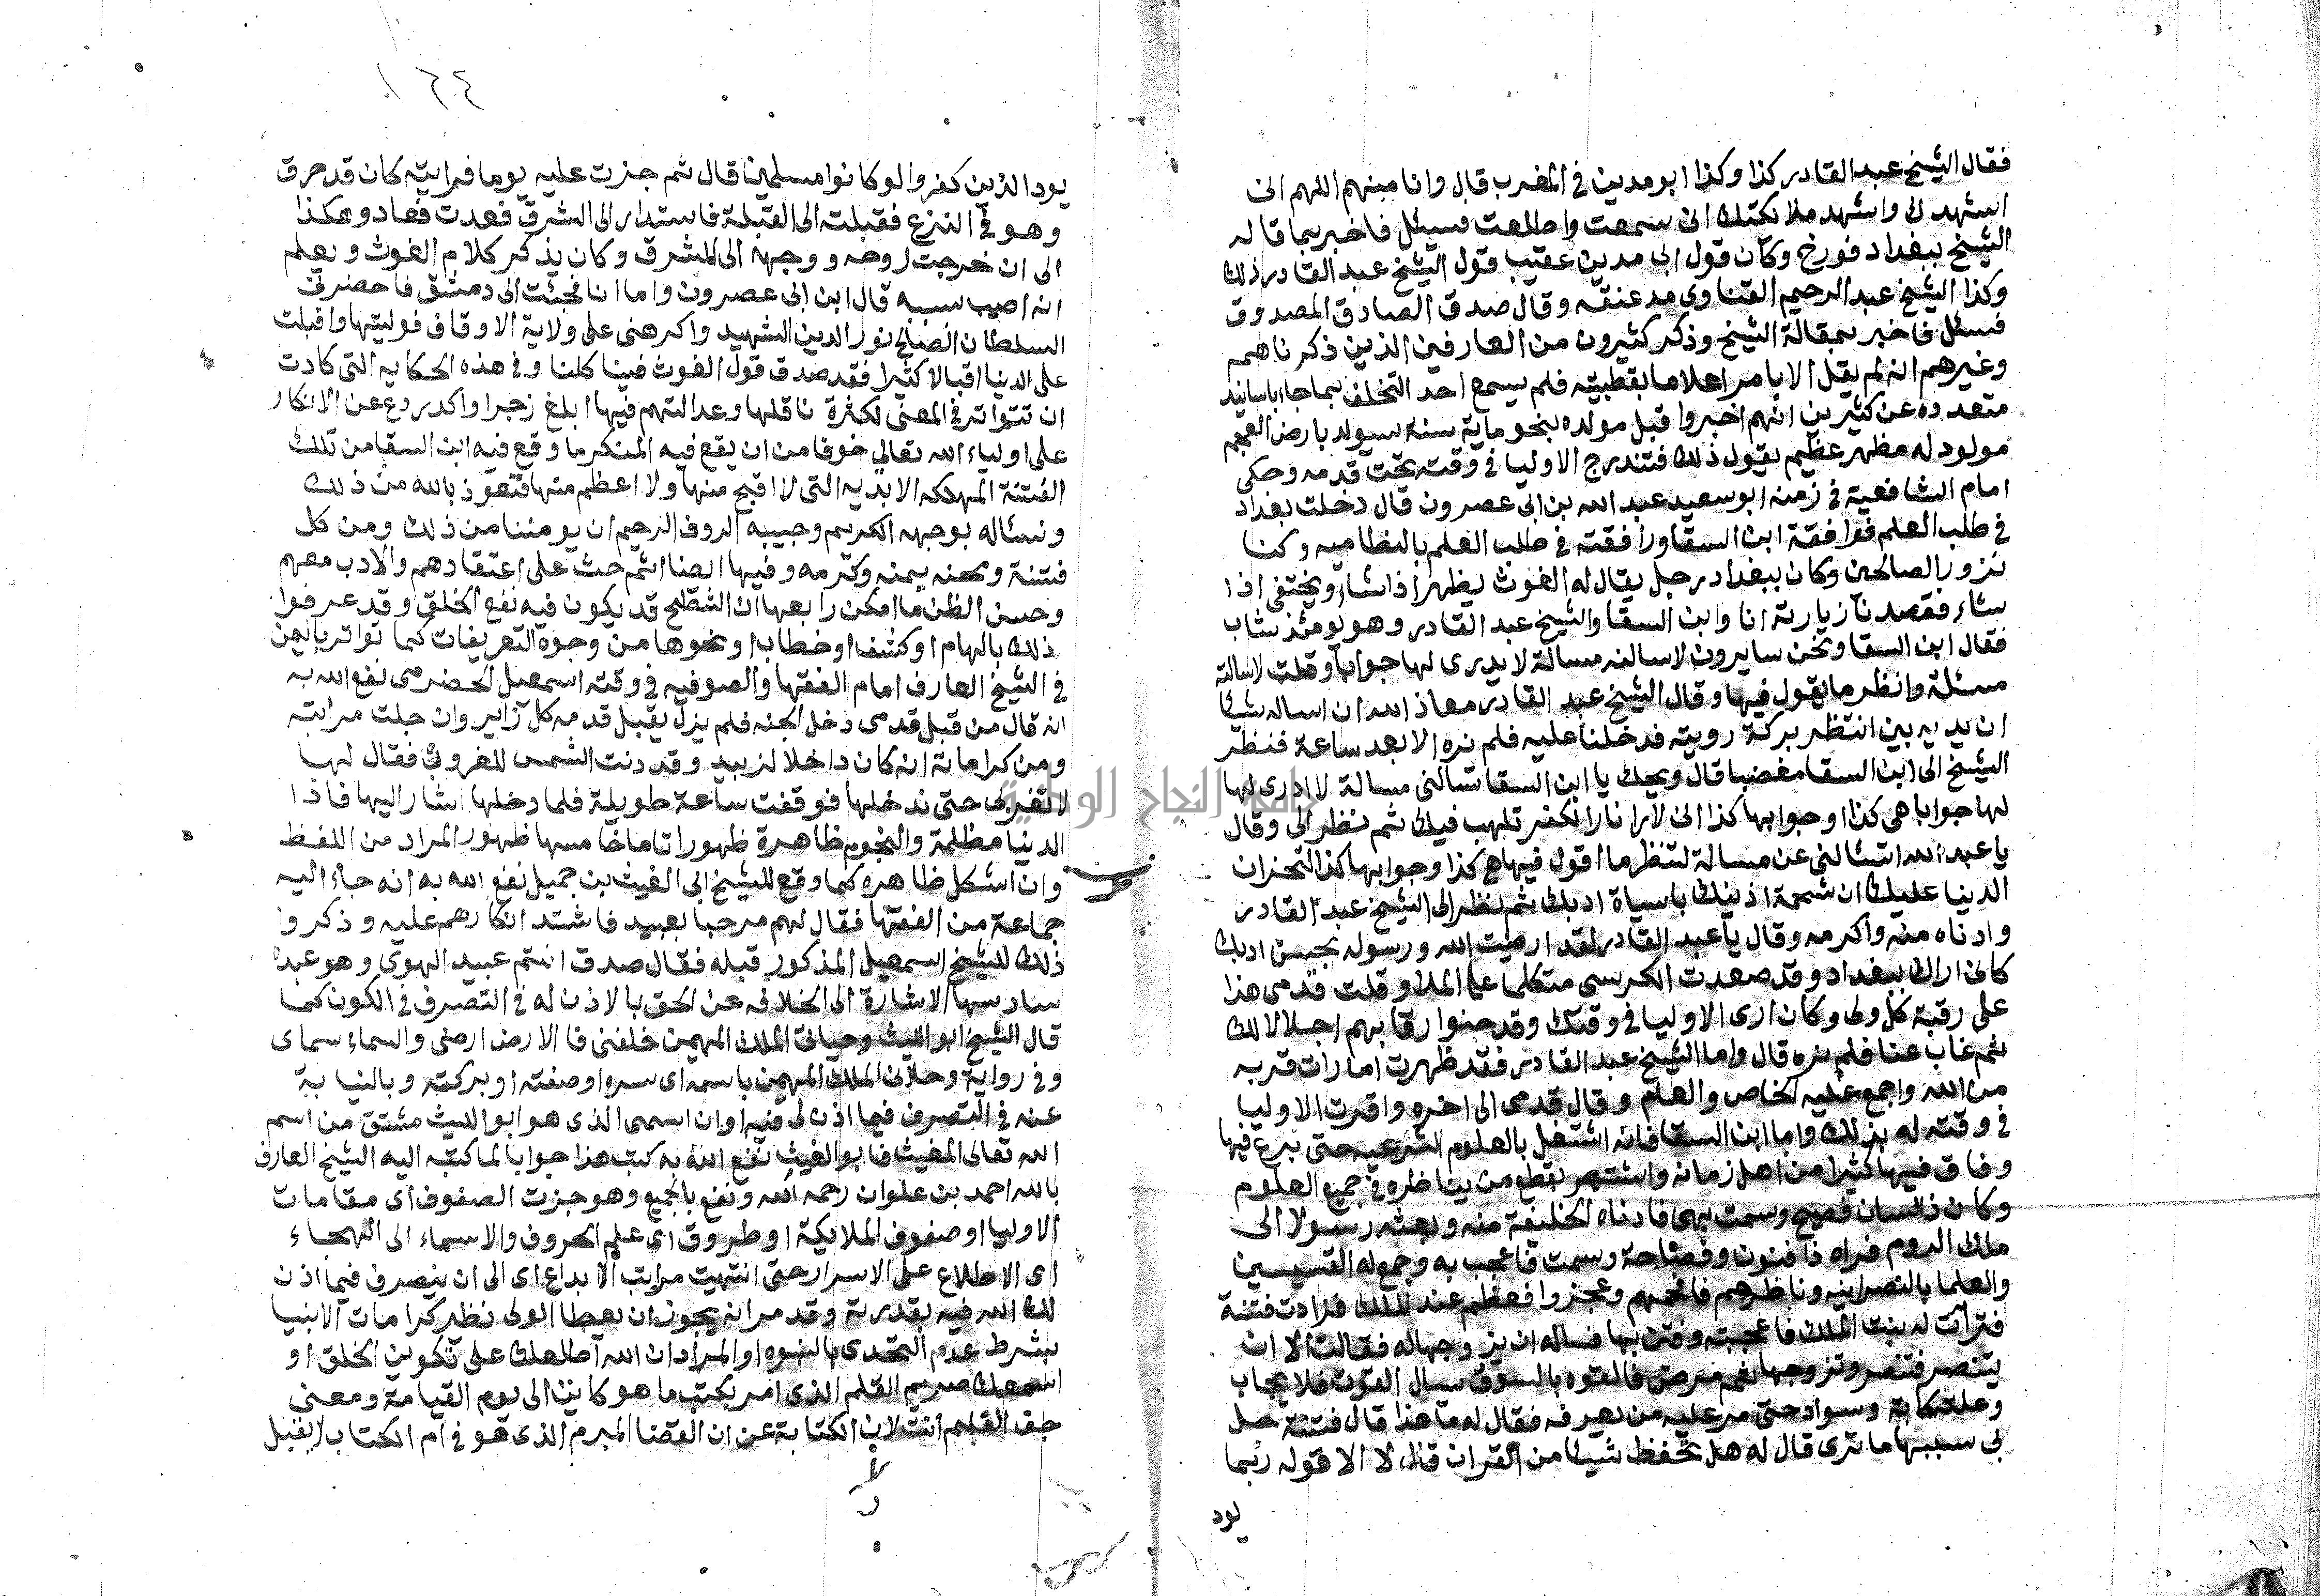 فقال الشيخ عبد القادر كذا وكذا ابو مدين في المغرب قال وانا منهم اللهم اني
اشهدك واشهد ملائكتك اني سمعت واطعت فسئل فاخبر بما قاله
الشيخ ببغداد فورخ وكان قول ابي مدين عقيب قول الشيخ عبد القادر ذلك
وكذا الشيخ عبد الرحيم القناوي مد عنقه وقال صدق الصادق المصدوق
فسئل فاخبر بمقالة الشيخ وذكر كثيرون من العارفين الذين ذكرناهم
وغيرهم انه لم يقل الا بامر اعلاما بقطبيته فلم يسع احد التخلف بما جا باسانيد
متعدده عن كثيرين انهم اخبروا قبل مولده بنحو ماية سنة سيولد بارض العجم
مولود له مظهر عظيم يقول ذلك فتندرج الاوليا في وقته تحت قدمه وحكى
امام الشافعية في زمنه ابو سعيد عبد الله بن ابي عصرون قال دخلت بغداد
في طلب العلم فوافقة ابن السقا ورافقته في طلب العلم بالنظاميه وكنا
نزور الصالحين وكان ببغداد رجل يقال له الغوث يظهر اذا شاء ويختفي اذا
شاء فقصدنا زيارته انا وابن السقا والشيخ عبد القادر وهو يومئذ شاب
فقال ابن السقا ونحن سايرون لاسالنه مسالة لا يدري لها جوابا وقلت لاسالنه
مسئلة وانظر ما يقول فيها وقال الشيخ عبد القادر معاذ الله ان اساله شيئا
ان بين يديه انتظر بركة رويته فدخلنا عليه فلم نره الا بعد ساعة فنظر
الشيخ الى ابن السقا مغضبا قال ويحك يا ابن السقا تسالني مسالة لا ادري لها
لها جوابا هي كذا وجوابها كذا اني لارا نار الكفر تلهب فيك ثم نظر الي وقال
يا عبد الله اتسالني عن مسالة لتنظر ما اقول فيها هي كذا وجوابها كذا لتخزان
الدنيا عليك ان شحمة اذنيك باسياة ادبك ثم نظر الى الشيخ عبد القادر
وادناه منه واكرمه وقال يا عبد القادر لقد ارضيت الله ورسوله بحسن ادبك
كاني اراك ببغداد وقد صعدت الكرسي متكلما على الملا وقلت قدمي هذا
على رقبة كل ولي وكان ارى الاوليا في وقتك وقد حنوا رقابهم اجلالا لك
ثم غاب عنا فلم نره قال واما الشيخ عبد القادر فقد ظهرت امارات قربه
من الله واجمع عليه الخاص والعام وقال قدمي الى اخره واقرت الاوليا
في وقته له بذلك واما ابن السقا فانه اشتغل بالعلوم الشرعيه حتى برع فيها
وفاق فيها كثيرا من اهل زمانه واشتهر بقطع من يناظره في جميع العلوم
وكان ذا لسان فصيح وسمت بهي فادناه الخليفة منه وبعثه رسولا الى
ملك الروم فراه ذا فنون وفصاحة وسمت فاعجب به وجمع له القسيسين
والعلما بالنصرانيه وناظرهم فافحمهم وعجزوا فعظم عند الملك فزادت فتنة
فترات له بنت الملك فاعجبته وفتن بها فساله ان يزوجها له فقالت الا ان
يتنصر فتنصر وتزوجها ثم مرض فالقوه بالسوق يسال القوت فلا يجاب
وعلته كابة وسواد حتى مر عليه من يعرفه فقال له ما هذا قال فتنة حل
لي سببها ما ترى قال له هل تحفظ شيئا من القران قال لا الا قوله ربما
يود
١٦٤
يود الذين كفروا لو كانوا مسلمين قال ثم جزت عليه يوما فرايته كان قد حرق
وهو في النزع فقبلته الى القبلة فاستدار الى الشرق فعدت فعاد وهكذا
الى ان خرجت روحه ووجهه الى المشرق وكان يذكر كلام الغوث ويعلم
انه اصيب بسببه قال ابن ابي عصرون واما انا فجئت الى دمشق فاحضرني
السلطان الصالح نور الدين الشهيد واكرهني على ولاية الاوقاف فوليتها واقبلت
على الدنيا اقبالا كثيرا فقد صدق قول الغوث فينا كلنا وفي هذه الحكايه التي كادت
ان تتواتر في المعنى لكثرة ناقلها وعدالتهم فيها ابلغ زجرا واكد ردع عن الانكار
على اولياء الله تعالى خوفا من ان يقع فيه المنكر ما وقع فيه ابن السقا من تلك
الفتنة المهلكه الابديه التي لا اقبح منها ولا اعظم منها فنعوذ بالله من ذلك
ونساله بوجهه الكريم وحبيبه الروف الرحيم ان يومننا من ذلك ومن كل
فتنة ومحنه بمنه وكرمه وفيها ايضا اتم حث على اعتقادهم والادب معهم
وحسن الظن ما امكن رابعها ان الشطح قد يكون فيه نفع الخلق وقد عرفوا
ذلك بالهام او كشف او خطاب او نحوها من وجوه التعريفات كما تواتر باليمن
في الشيخ العارف امام الفقها والصوفيه في وقته اسمعيل الحضرمي نفع الله به
انه قال من قبل قدمي دخل الجنه فلم يزل يقبل قدمه كل زاير وان جلت مرابته
ومن كراماته انه كان داخلا لزبيد وقد دنت الشمس للغروب فقال لها
لا تغربي حتى ندخلها فوقفت ساعة طويلة فلما دخلها اشار اليها فاذا
الدنيا مظلمة والنجوم ظاهرة ظهورا تاما خامسها ظهور المراد من اللفظ
وان اشكل ظاهره كما وقع للشيخ ابي الغيث بن جميل نفع الله به انه جاء اليه
جماعة من الفقها فقال لهم مرحبا بعبيد فاشتد انكارهم عليه وذكروا
ذلك للشيخ اسمعيل المذكور قبله فقال صدق انتم عبيد الهوى وهو عبده
سادسها الاشارة الى الخلافه عن الحق بالاذن له في التصرف في الكون كما
قال الشيخ ابو الليث وحياتي الملك المهيمن خلفني فالارض ارضي والسماء سماي
وفي رواية وحلاني الملك المهيمن باسمه اي سره او صفته او بركته وبالنيابة
عنه في التصرف فيما اذن لي فيه او ان اسمى الذي هو ابو الليث مشتق من اسم
الله تعالى المغيث فابو الغيث نفع الله به كتب هذا جوابا لما كتبه اليه الشيخ العارف
بالله احمد بن علوان رحمه الله ونفع بالجميع وهو جزت الصفوف اي مقامات
الاوليا او صفوف الملايكة او طروق اي علم الحروف والاسماء الى الهجاء
اي الاطلاع على الاسرار حتى انتهيت مراتب الابداع اي الى ان يتصرف فيما اذن
لك الله فيه بقدرته وقد مر انه يجوز ان يعطا الولي نظير كرامات الانبيا
بشرط عدم التحدي بالنبوه او المراد ان الله اطلعك على تكوين الخلق او
اسمعك صرير القلم الذي امر بكتب ما هو كاين الى يوم القيامة ومعنى
جف القلم انت لان الكتابة عن ان القضا المبرم الذي هو في ام الكتاب لا يقبل